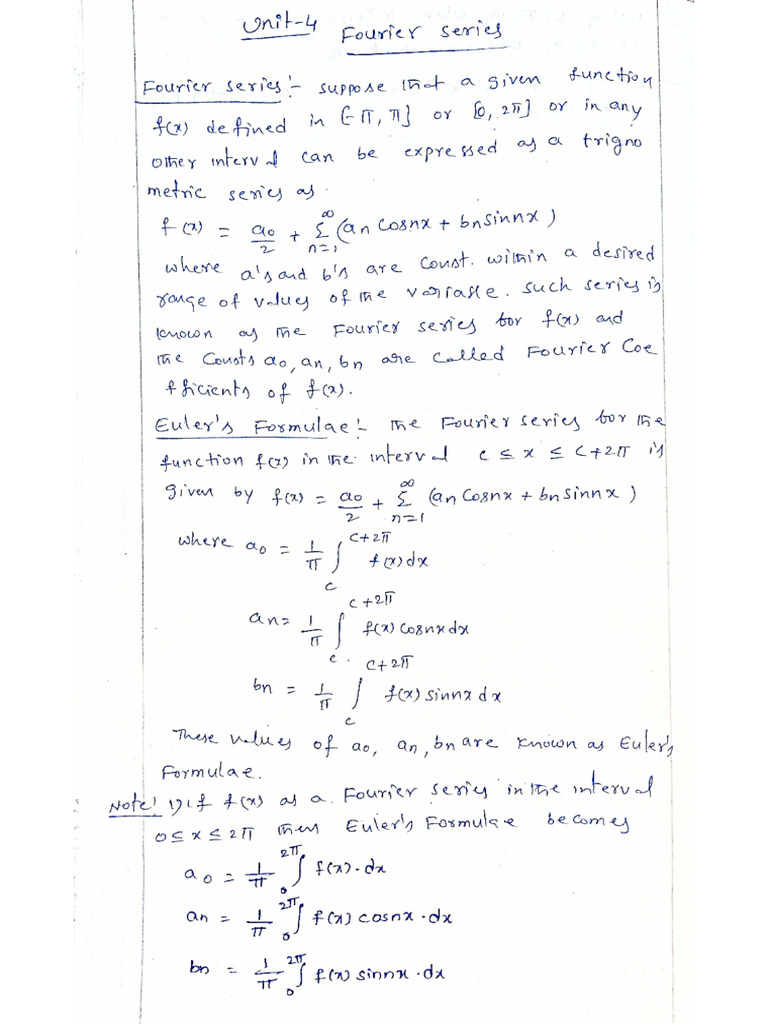 Unit-4 Fourier series
Fourier series:- suppose that a given function
f(x) defined in [-π, π] or [0, 2π] or in any
other interval can be expressed as a trigno
metric series as.
f(x) = a0/2 + ∑_{n=1}^{∞} (an cosnx + bn sinnx)
where a's and b's are const. within a desired
range of values of the variable. such series is
known as the Fourier series for f(x) and
the consts a0, an, bn are called Fourier Coe
fficients of f(x).
Euler's Formulae:- the Fourier series for the
function f(x) in the interval c ≤ x ≤ c+2π is
given by f(x) = a0/2 + ∑_{n=1}^{∞} (an cosnx + bn sinnx)
where a0 = 1/π ∫_{c}^{c+2π} f(x)dx
an = 1/π ∫_{c}^{c+2π} f(x) cosnx dx
bn = 1/π ∫_{c}^{c+2π} f(x) sinnx dx
These values of a0, an, bn are known as Euler's
Formulae.
Note: 1) If f(x) as a Fourier series in the interval
0 ≤ x ≤ 2π then Euler's Formulae becomes
a0 = 1/π ∫_{0}^{2π} f(x)·dx
an = 1/π ∫_{0}^{2π} f(x) cosnx·dx
bn = 1/π ∫_{0}^{2π} f(x) sinnx·dx